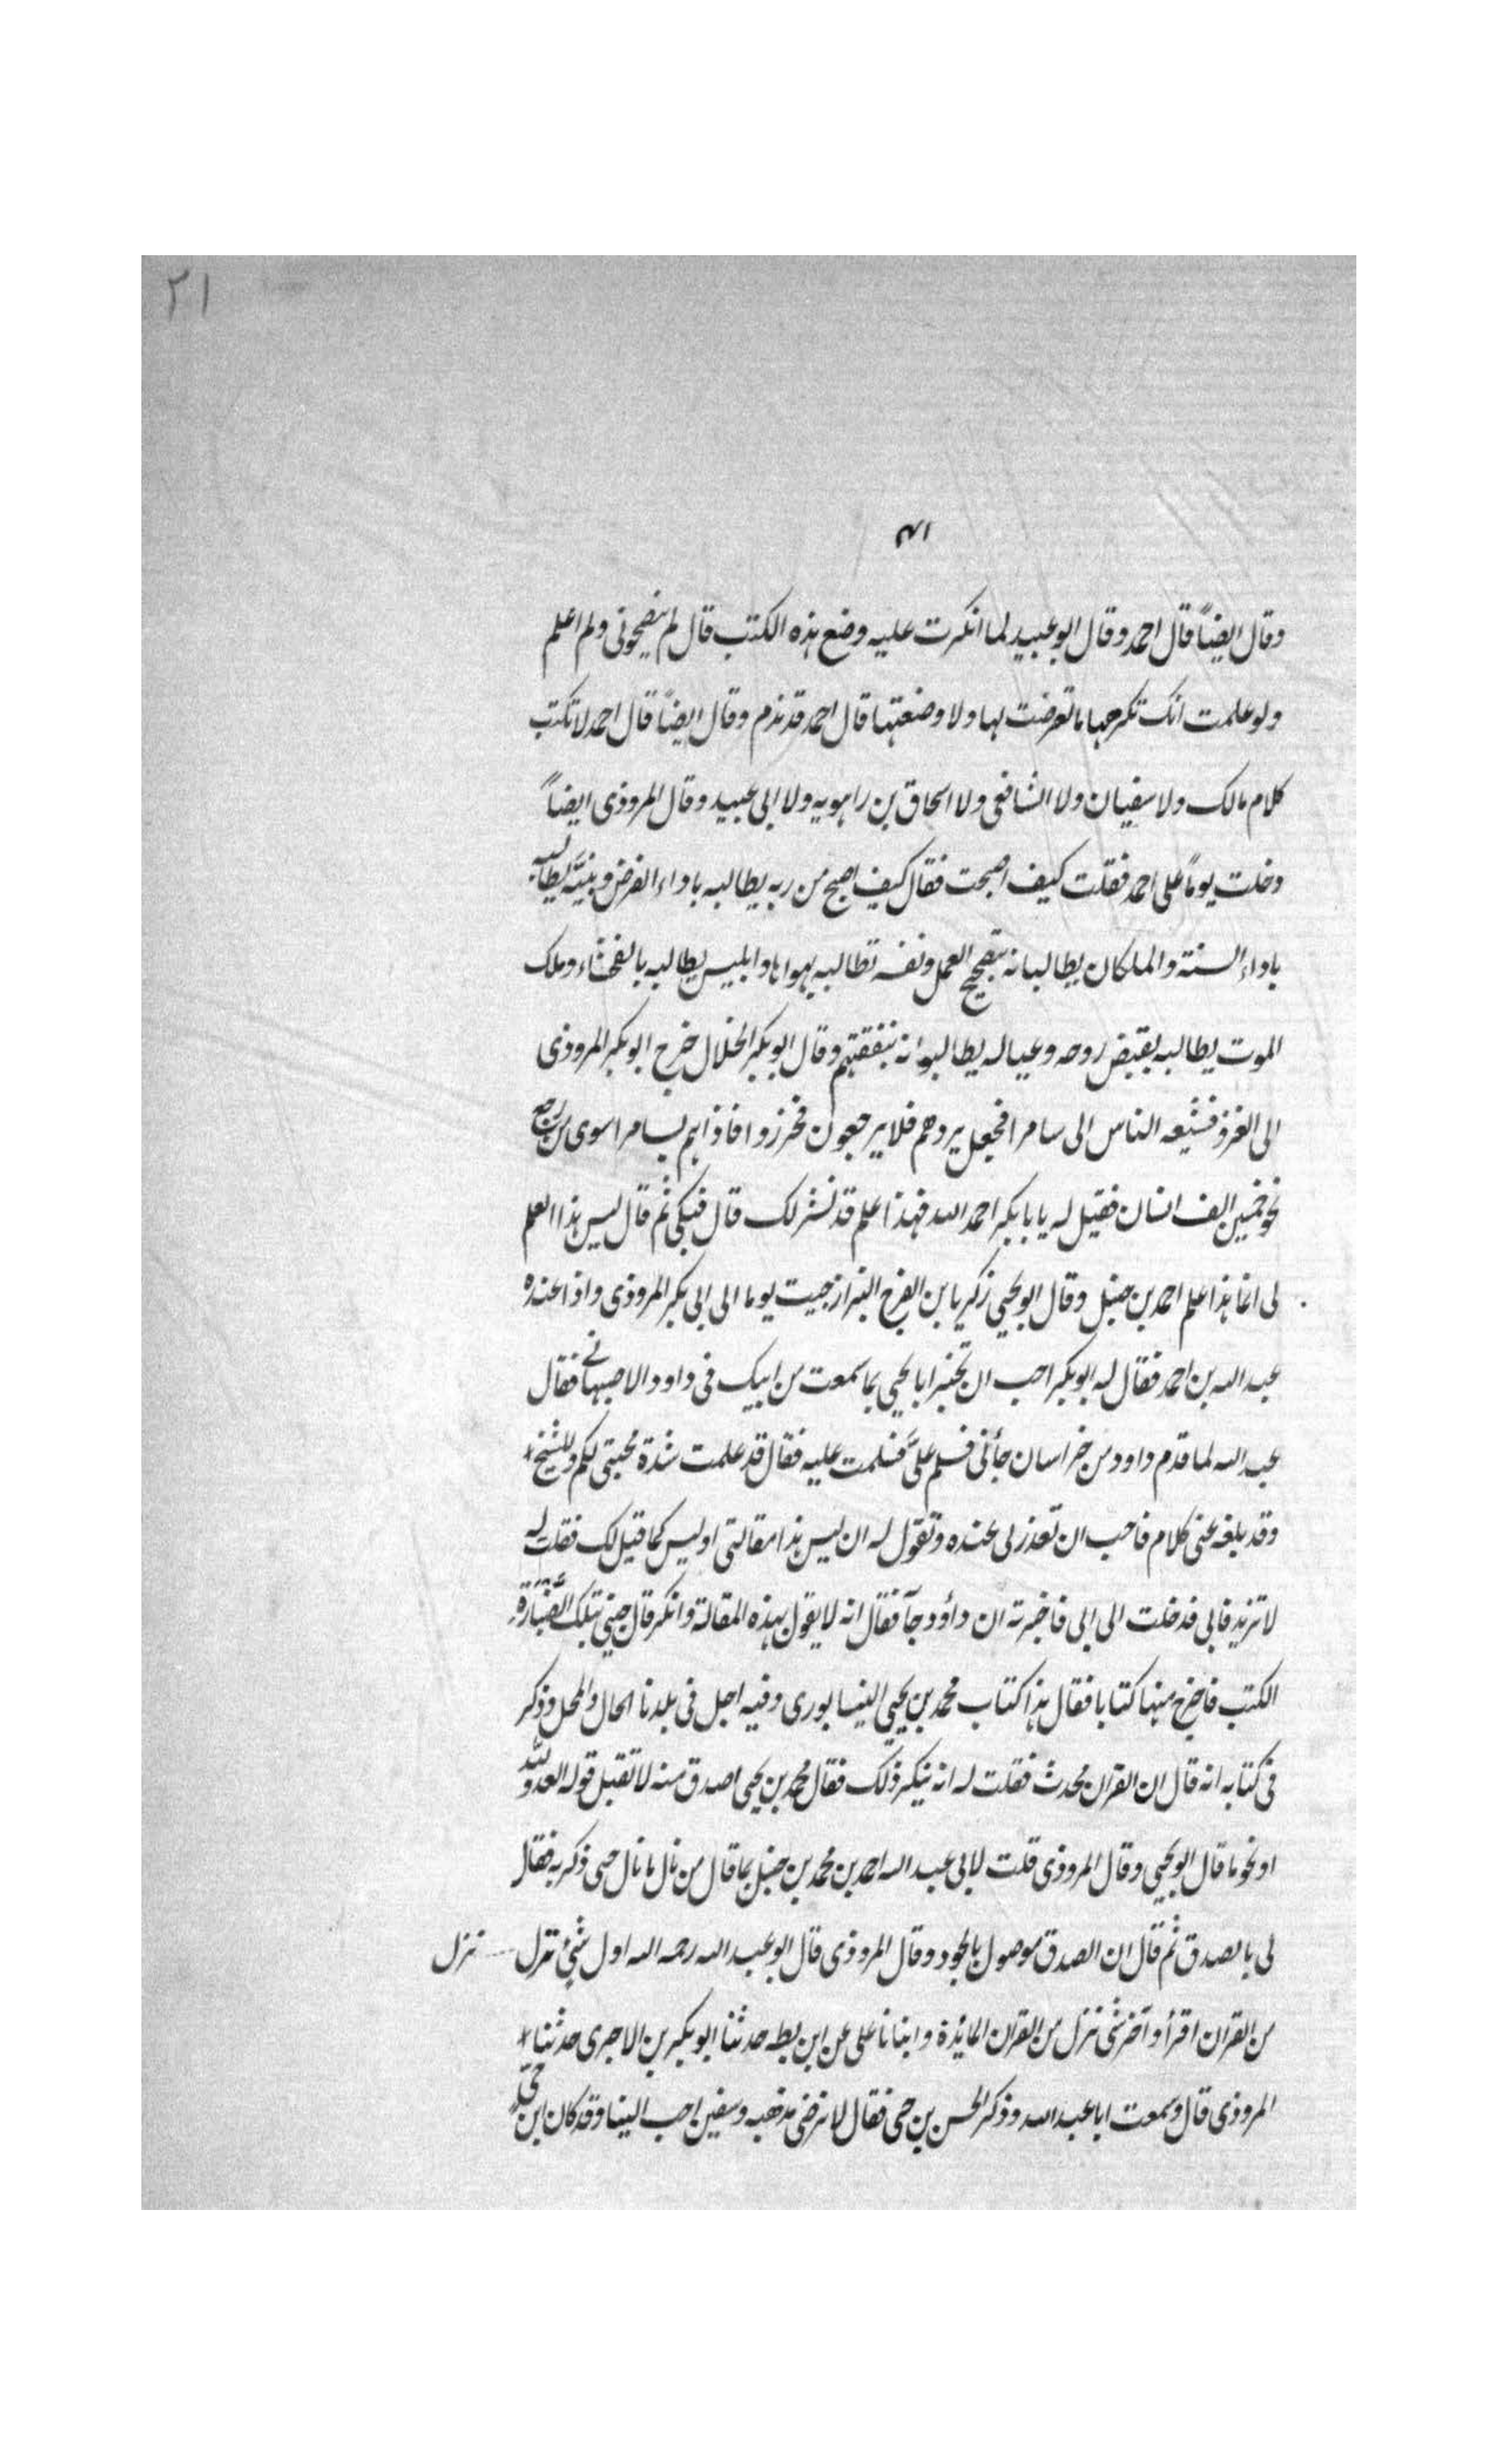 ٢١
٤١
وقال ايضاً قال احمد وقال ابو عبيد لما انكرت عليه وضع هذه الكتب قال لم ينصحونى ولم اعلم
ولو علمت انك تكرهها ما تعرضت لها ولا وضعتها قال احمد قد ندم وقال ايضاً قال احمد لا تكتب
كلام مالك ولا سفيان ولا الشافعى ولا اسحاق بن راهويه ولا ابى عبيد وقال المروذى ايضاً
دخلت يوماً على احمد فقلت كيف اصبحت فقال كيف اصبح من ربه يطالبه باداء الفرض ونبيّه يطالبه
باداء السنة والملكان يطالبانه بتصحيح العمل ونفسه تطالبه بهواها وابليس يطالبه بالفحشاء وملك
الموت يطالبه بقبض روحه وعياله يطالبوانه بنفقتهم وقال ابو بكر الخلال خرج ابو بكر المروذى
الى الغزو فشيعه الناس الى سامرا فجعل يردهم فلا يرجعون فحزروا فاذا هم بسامرا سوى من رجع
نحو خمسين الف انسان فقيل له يا بابكر احمد الله فهذا علم قد نشر لك قال فبكى ثم قال ليس هذا العلم
لى انما هذا علم احمد بن حنبل وقال ابو يحيي زكريا بن الفرج البزاز جيت يوما الى ابى بكر المروذى واذا عنده
عبد الله بن احمد فقال له ابو بكر احب ان تخبر ابا يحيي بما سمعت من ابيك فى داود الاصبهانى فقال
عبد الله لما قدم داود من خراسان جأنى فسلم علىَّ فسلمت عليه فقال قد علمت شدة محبتى لكم وللشيخ
وقد بلغه عنى كلام فاحب ان تعذر لى عنده وتقول له ان ليس هذا مقالتى او ليس كما قيل لك فقلت له
لا تريد فابى فدخلت الى ابى فاخبرته ان داؤد جآ فقال انه لا يقول بهذه المقالة وانكر قال جئنى بتلك الضبارة
الكتب فاخرج منها كتابا فقال هذا كتاب محمد بن يحيي النيسابورى وفيه احل فى بلدنا الحال والمحل وذكر
فى كتابه انه قال ان القران محدث فقلت له انه ينكر ذلك فقال محمد بن يحيى اصدق منه لا تقبل قوله العدو لله
او نحو ما قال ابو يحيي وقال المروذى قلت لابى عبد الله احمد بن محمد بن حنبل بما قال من نال ما نال حى ذكر به فقال
لى بالصدق ثم قال ان الصدق موصول بالجود وقال المروذى قال ابو عبد الله رحمه الله اول شئ نزل نزل
من القران اقرأ وآخر شى نزل من القران المائدة وانبانا على عن ابن بطه حدثنا ابو بكر بن الاجرى حدثنا
المروذى قال وسمعت ابا عبد الله وذكر الحسن بن حى فقال لا نرضى مذهبه وسفين احب الينا وقد كان ابن حى